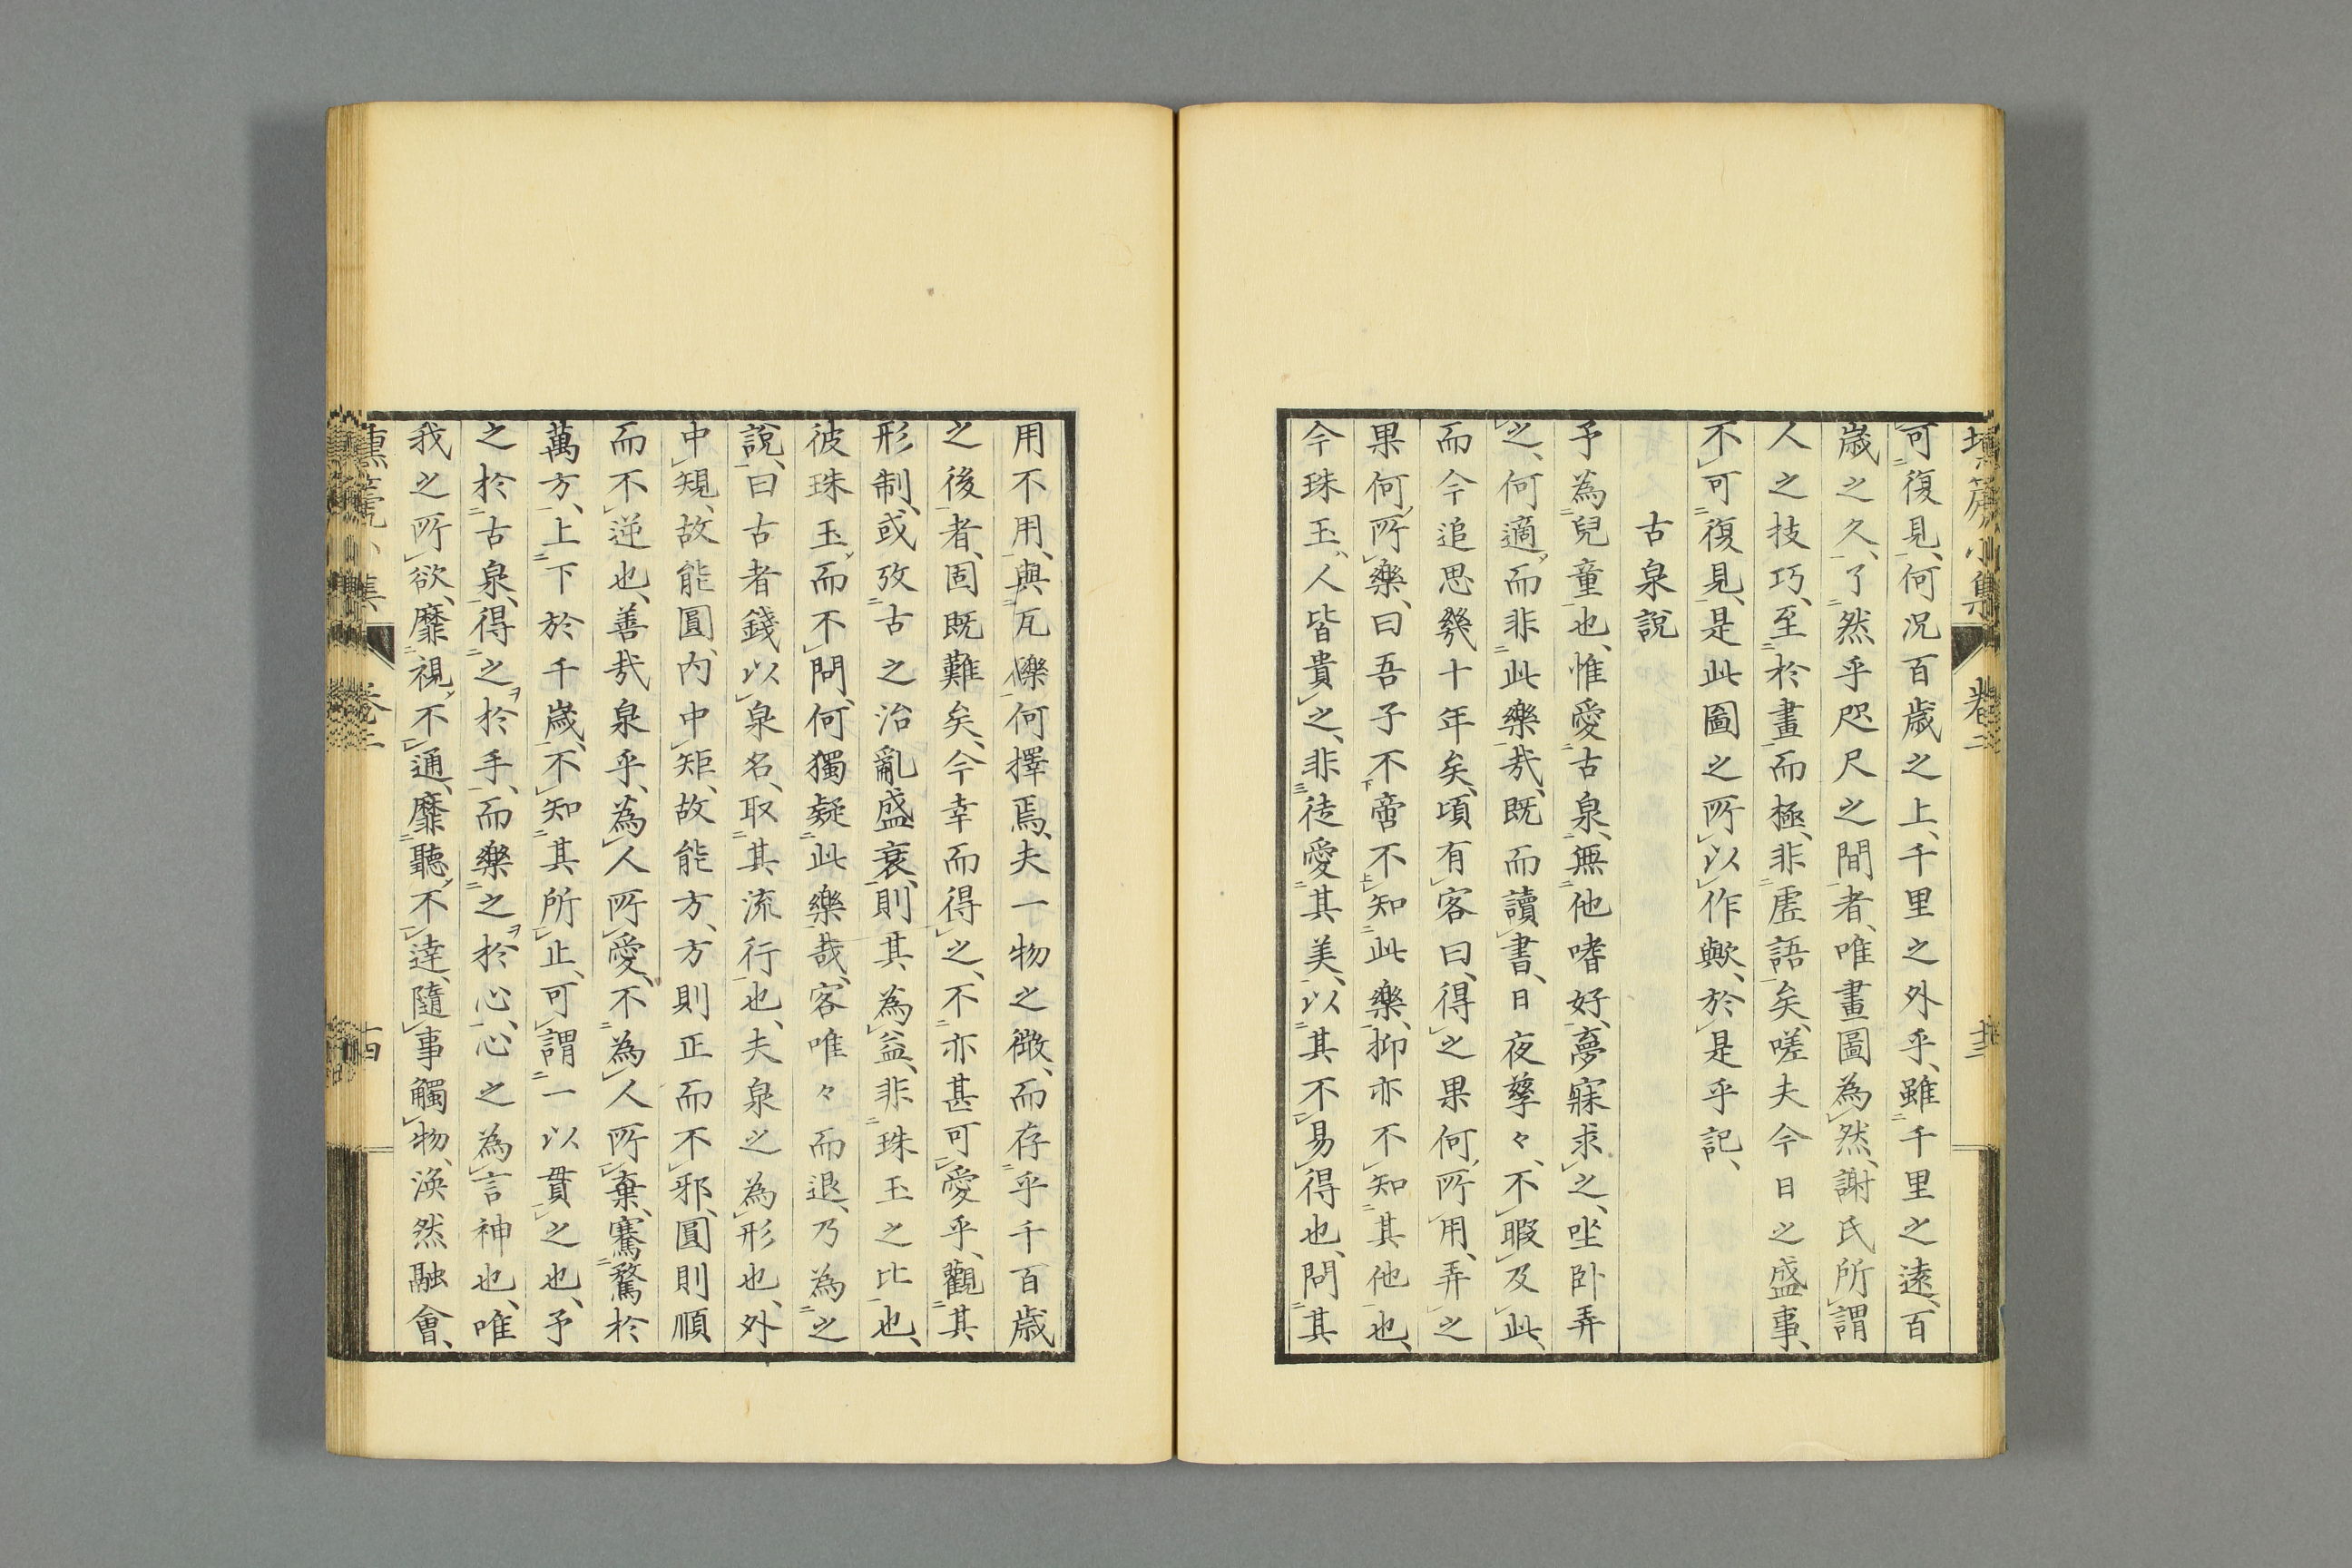 可復見、何況百歲之上、千里之外乎、雖千里之遠、百
歲之久、了然乎咫尺之間者、唯畫圖為然、謝氏所謂
人之技巧、至於畫而極、非虛語矣、嗟夫今日之盛事、
不可復見、是此圖之所以作歟、於是乎記、
古泉說
予為兒童也、惟愛古泉、無他嗜好、夢寐求之、坐臥弄
之、何適而非此樂哉、既而讀書、日夜孳々、不暇及此、
而今追思幾十年矣、頃有客曰、得之果何所用、弄之
果何所樂、曰吾子不啻不知此樂、抑亦不知其他也、
今珠玉、人皆貴之、非徒愛其美、以其不易得也、問其
用不用、與瓦礫何擇焉、夫一物之微、而存乎千百歲
之後者、固既難矣、今幸而得之、不亦甚可愛乎、觀其
形制、或攷古之治亂盛衰、則其為益、非珠玉之比也、
彼珠玉而不問、何獨疑此樂哉、客唯々而退、乃為之
說、曰古者錢以泉名、取其流行也、夫泉之為形也、外
中規、故能圓、內中矩、故能方、方則正而不邪、圓則順
而不逆也、善哉泉乎、為人所愛、不為人所棄、騫騖於
萬方、上下於千歲、不知其所止、可謂一以貫之也、予
之於古泉、得之於手、而樂之於心、心之為言神也、唯
我之所欲、靡視不通、靡聽不達、隨事觸物、渙然融會、